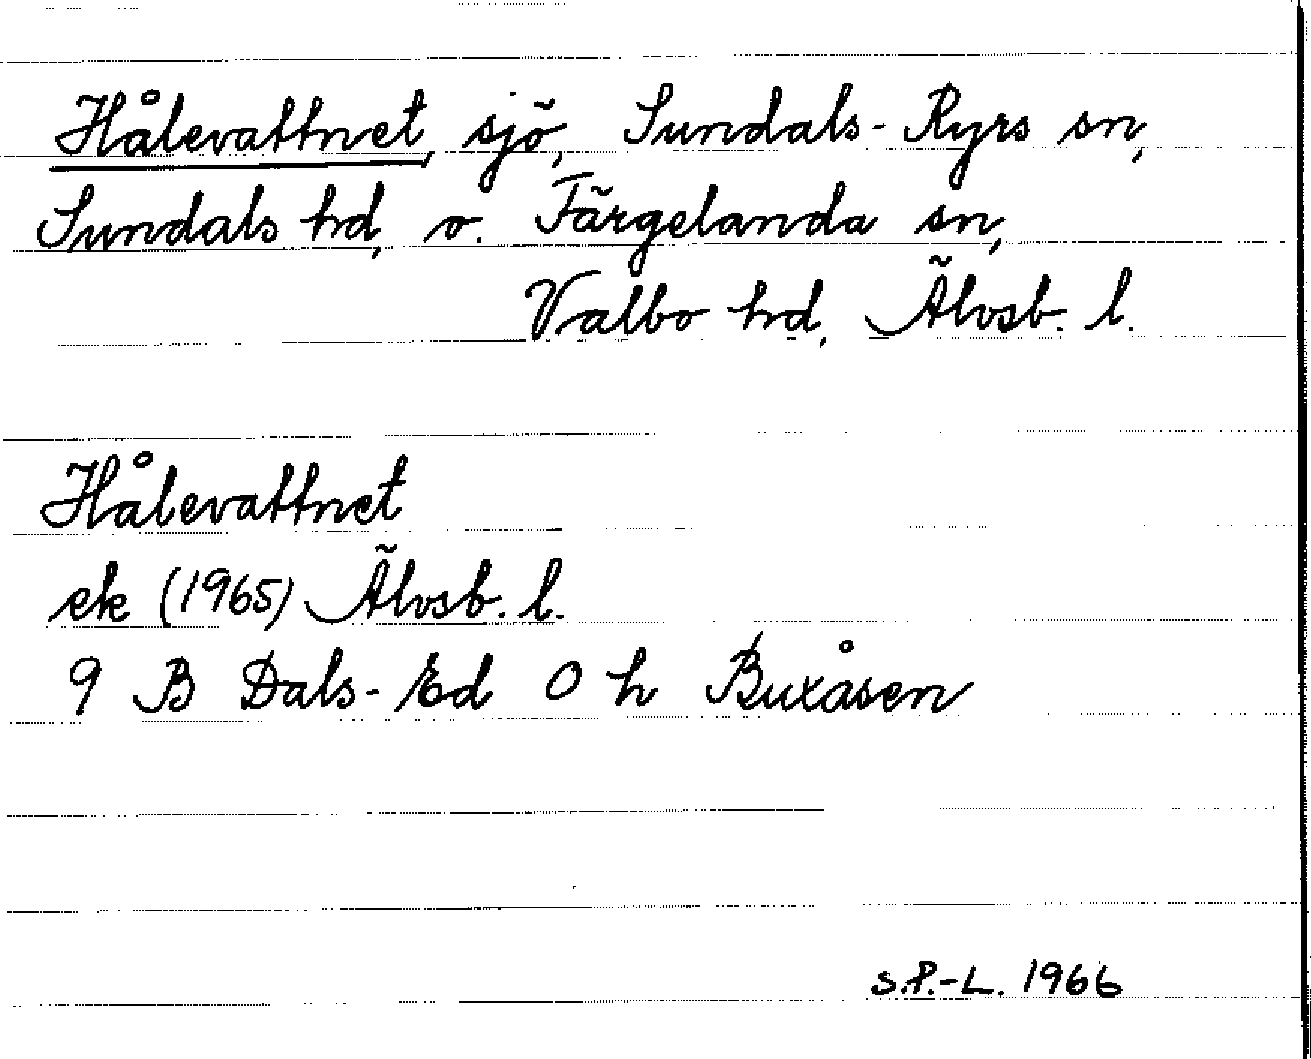 Hålevattnet, sjö, Sundals-Ryrs sn,
Sundals hd, o. Färgelanda sn,
Valbo hd, Älvsb. l.
Hålevattnet
ek (1965) Älvsb. l.
9 B Dals-Ed 0 h Buxåsen
S.P.-L. 1966